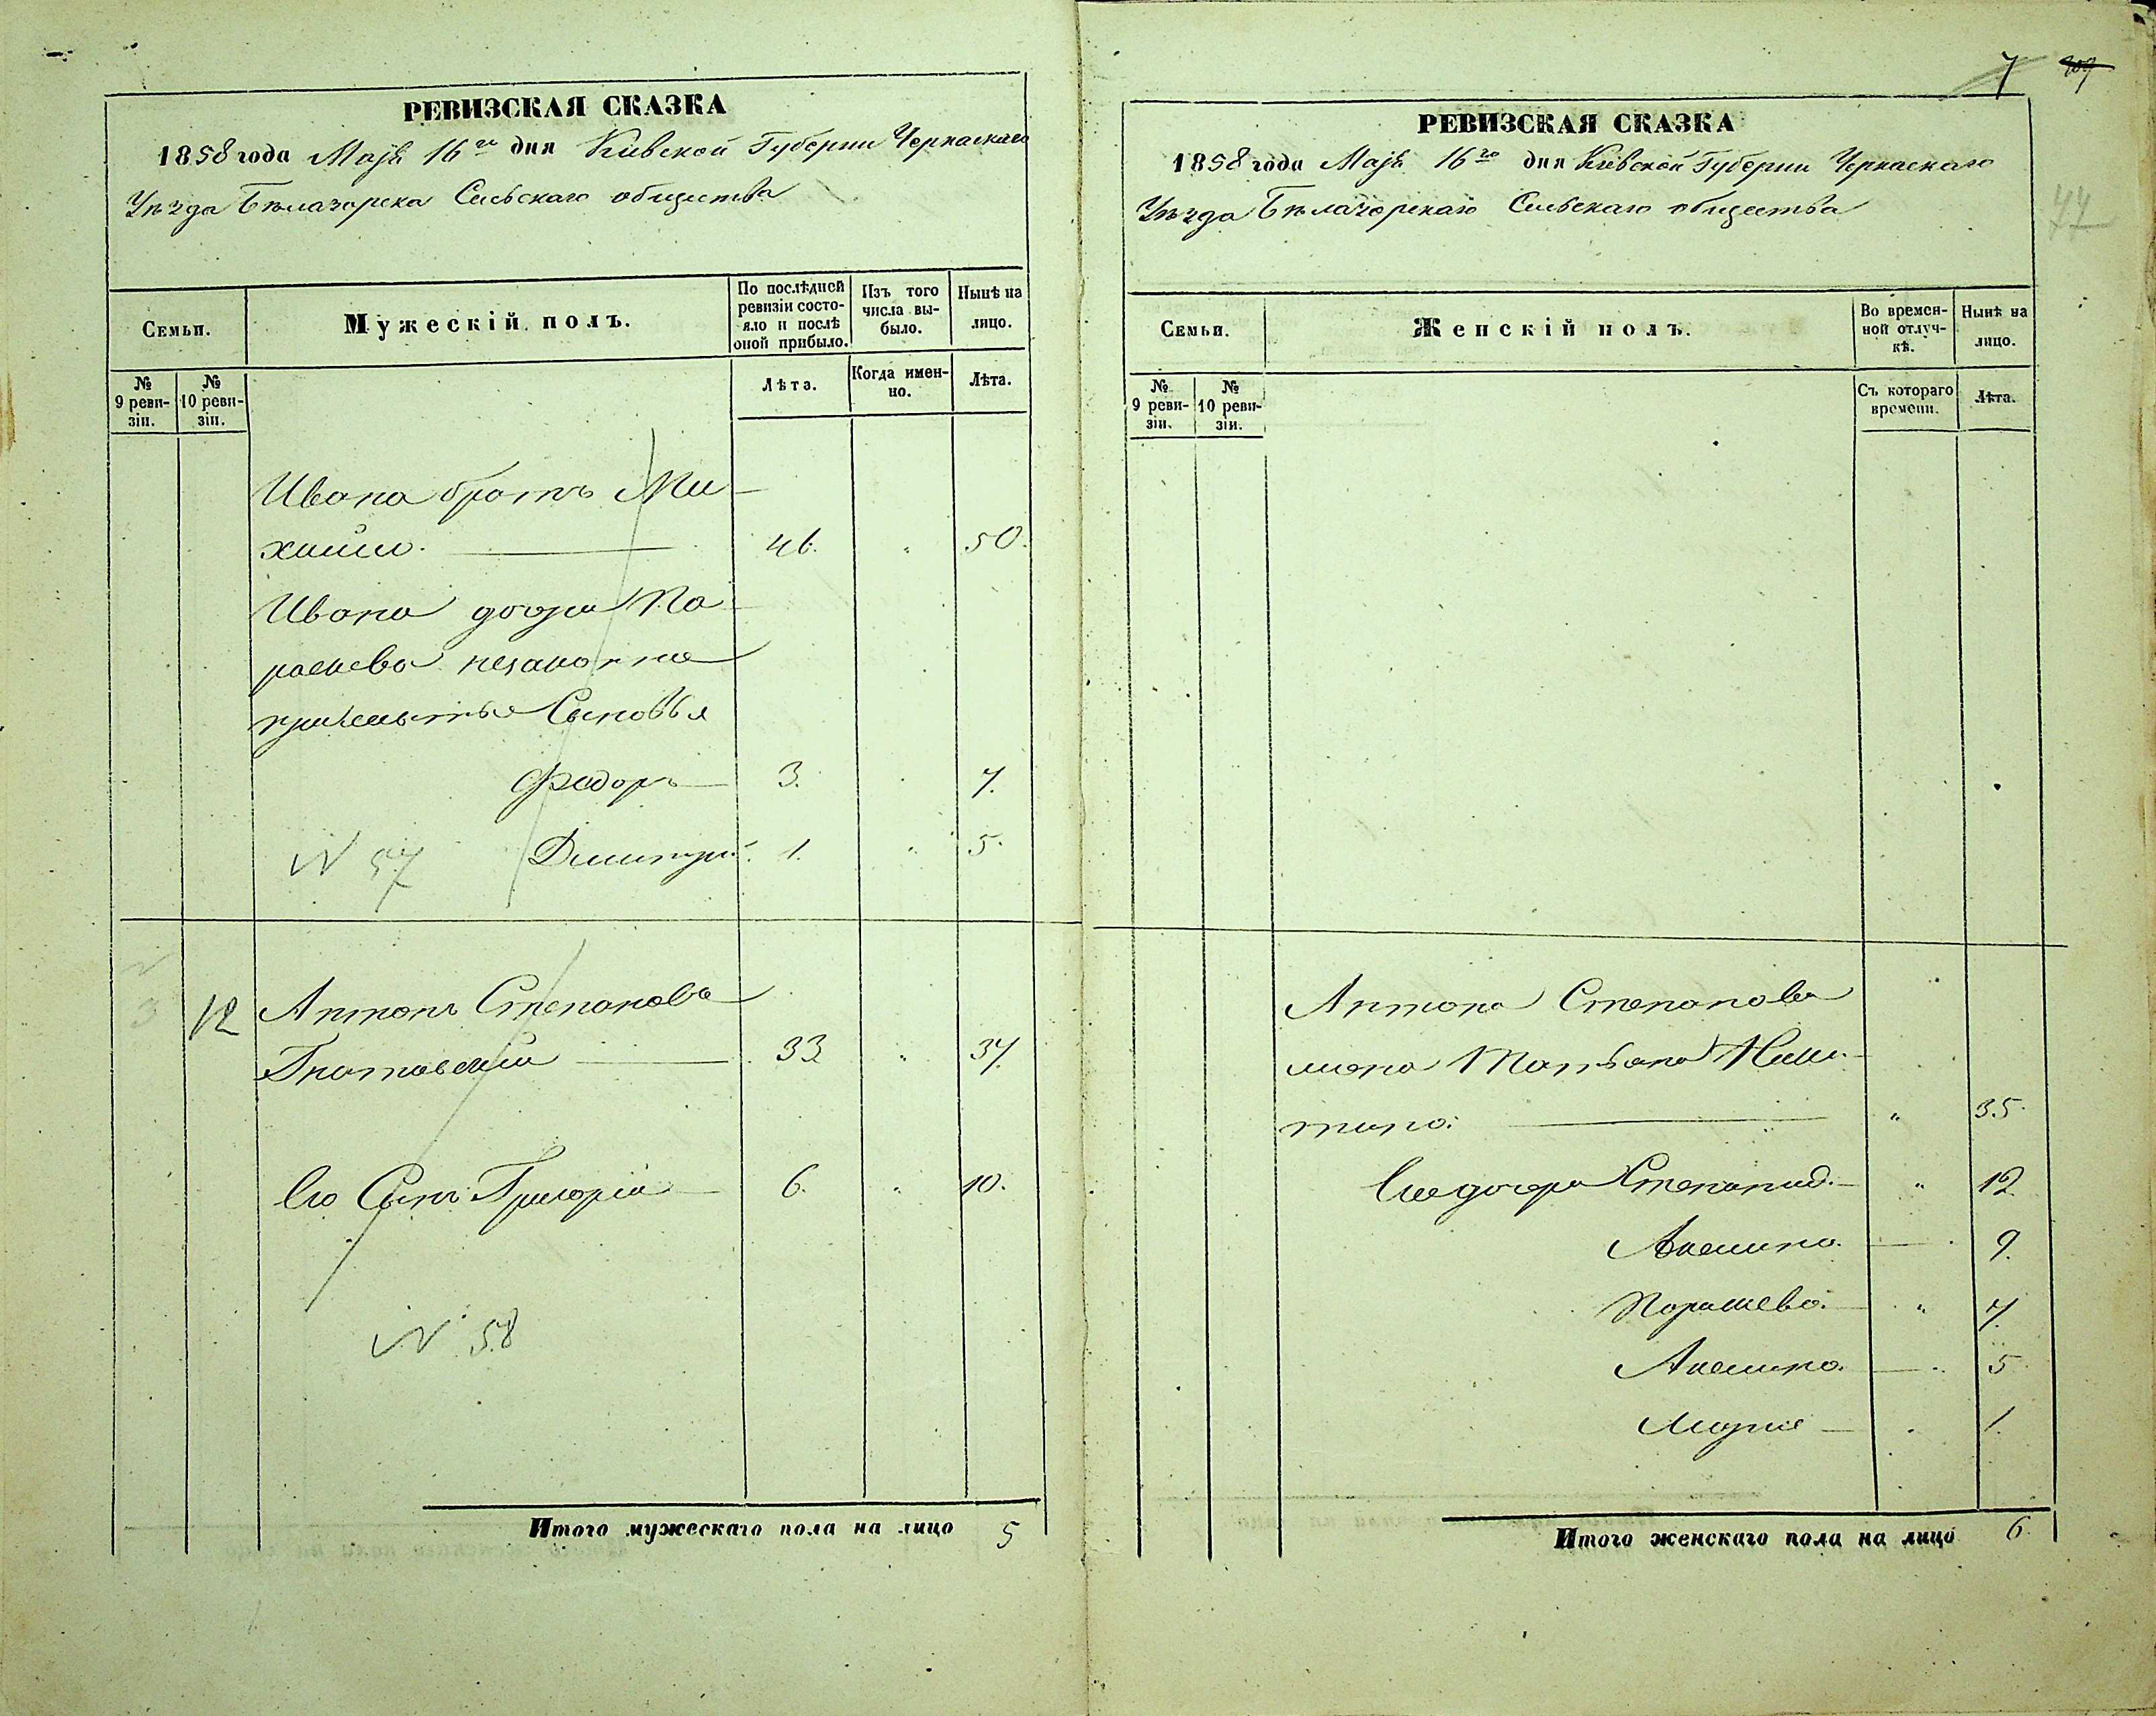 РЕВИЗСКАЯ СКАЗКА
1858 года Маія 16го дня Кіевской Губерніи Черкаскаго
Уѣзда Бѣлазорска Сельскаго общества
Семьи.
Мужескій полъ.
По послѣдней ревизіи состо-
яло и послѣ
оной прибыло.
Изъ того
числа вы-
было.
Нынѣ на
лицо.
№
9 реви-
зіи.
№
10 реви-
зіи.
Лѣта.
Когда имен-
но.
Лѣта.
Ивана братъ Ми
хайло. 46. 50.
Ивана дочери Па
раскевы незаконно
прижитыя Сыновья
Федоръ 3. 7.
N 57 Дмитрій. 1. 5.
3 12 Антонъ Степановъ
33 37.
Его Сынъ Григорій 6. 10.
N 58
Итого мужескаго пола на лицо 5
7
77
РЕВИЗСКАЯ СКАЗКА
1858 года Маія 16го дня Кіевской Губерніи Черкаскаго
Уѣзда Бѣлазорскаго Сельскаго общества
Семьи.
Женскій полъ.
Во времен-
ной отлуч-
кѣ.
Нынѣ на
лицо.
№
9 реви-
зіи.
№
10 реви-
зіи.
Съ котораго
времени.
Лѣта.
Антона Степанова
жена Татьяна Ники-
тина. 35.
Его дочери Степанид. 12
Акелина. 9.
Параскева. 7.
Акелина. 5
Марія 1.
Итого женскаго пола на лицо 6.